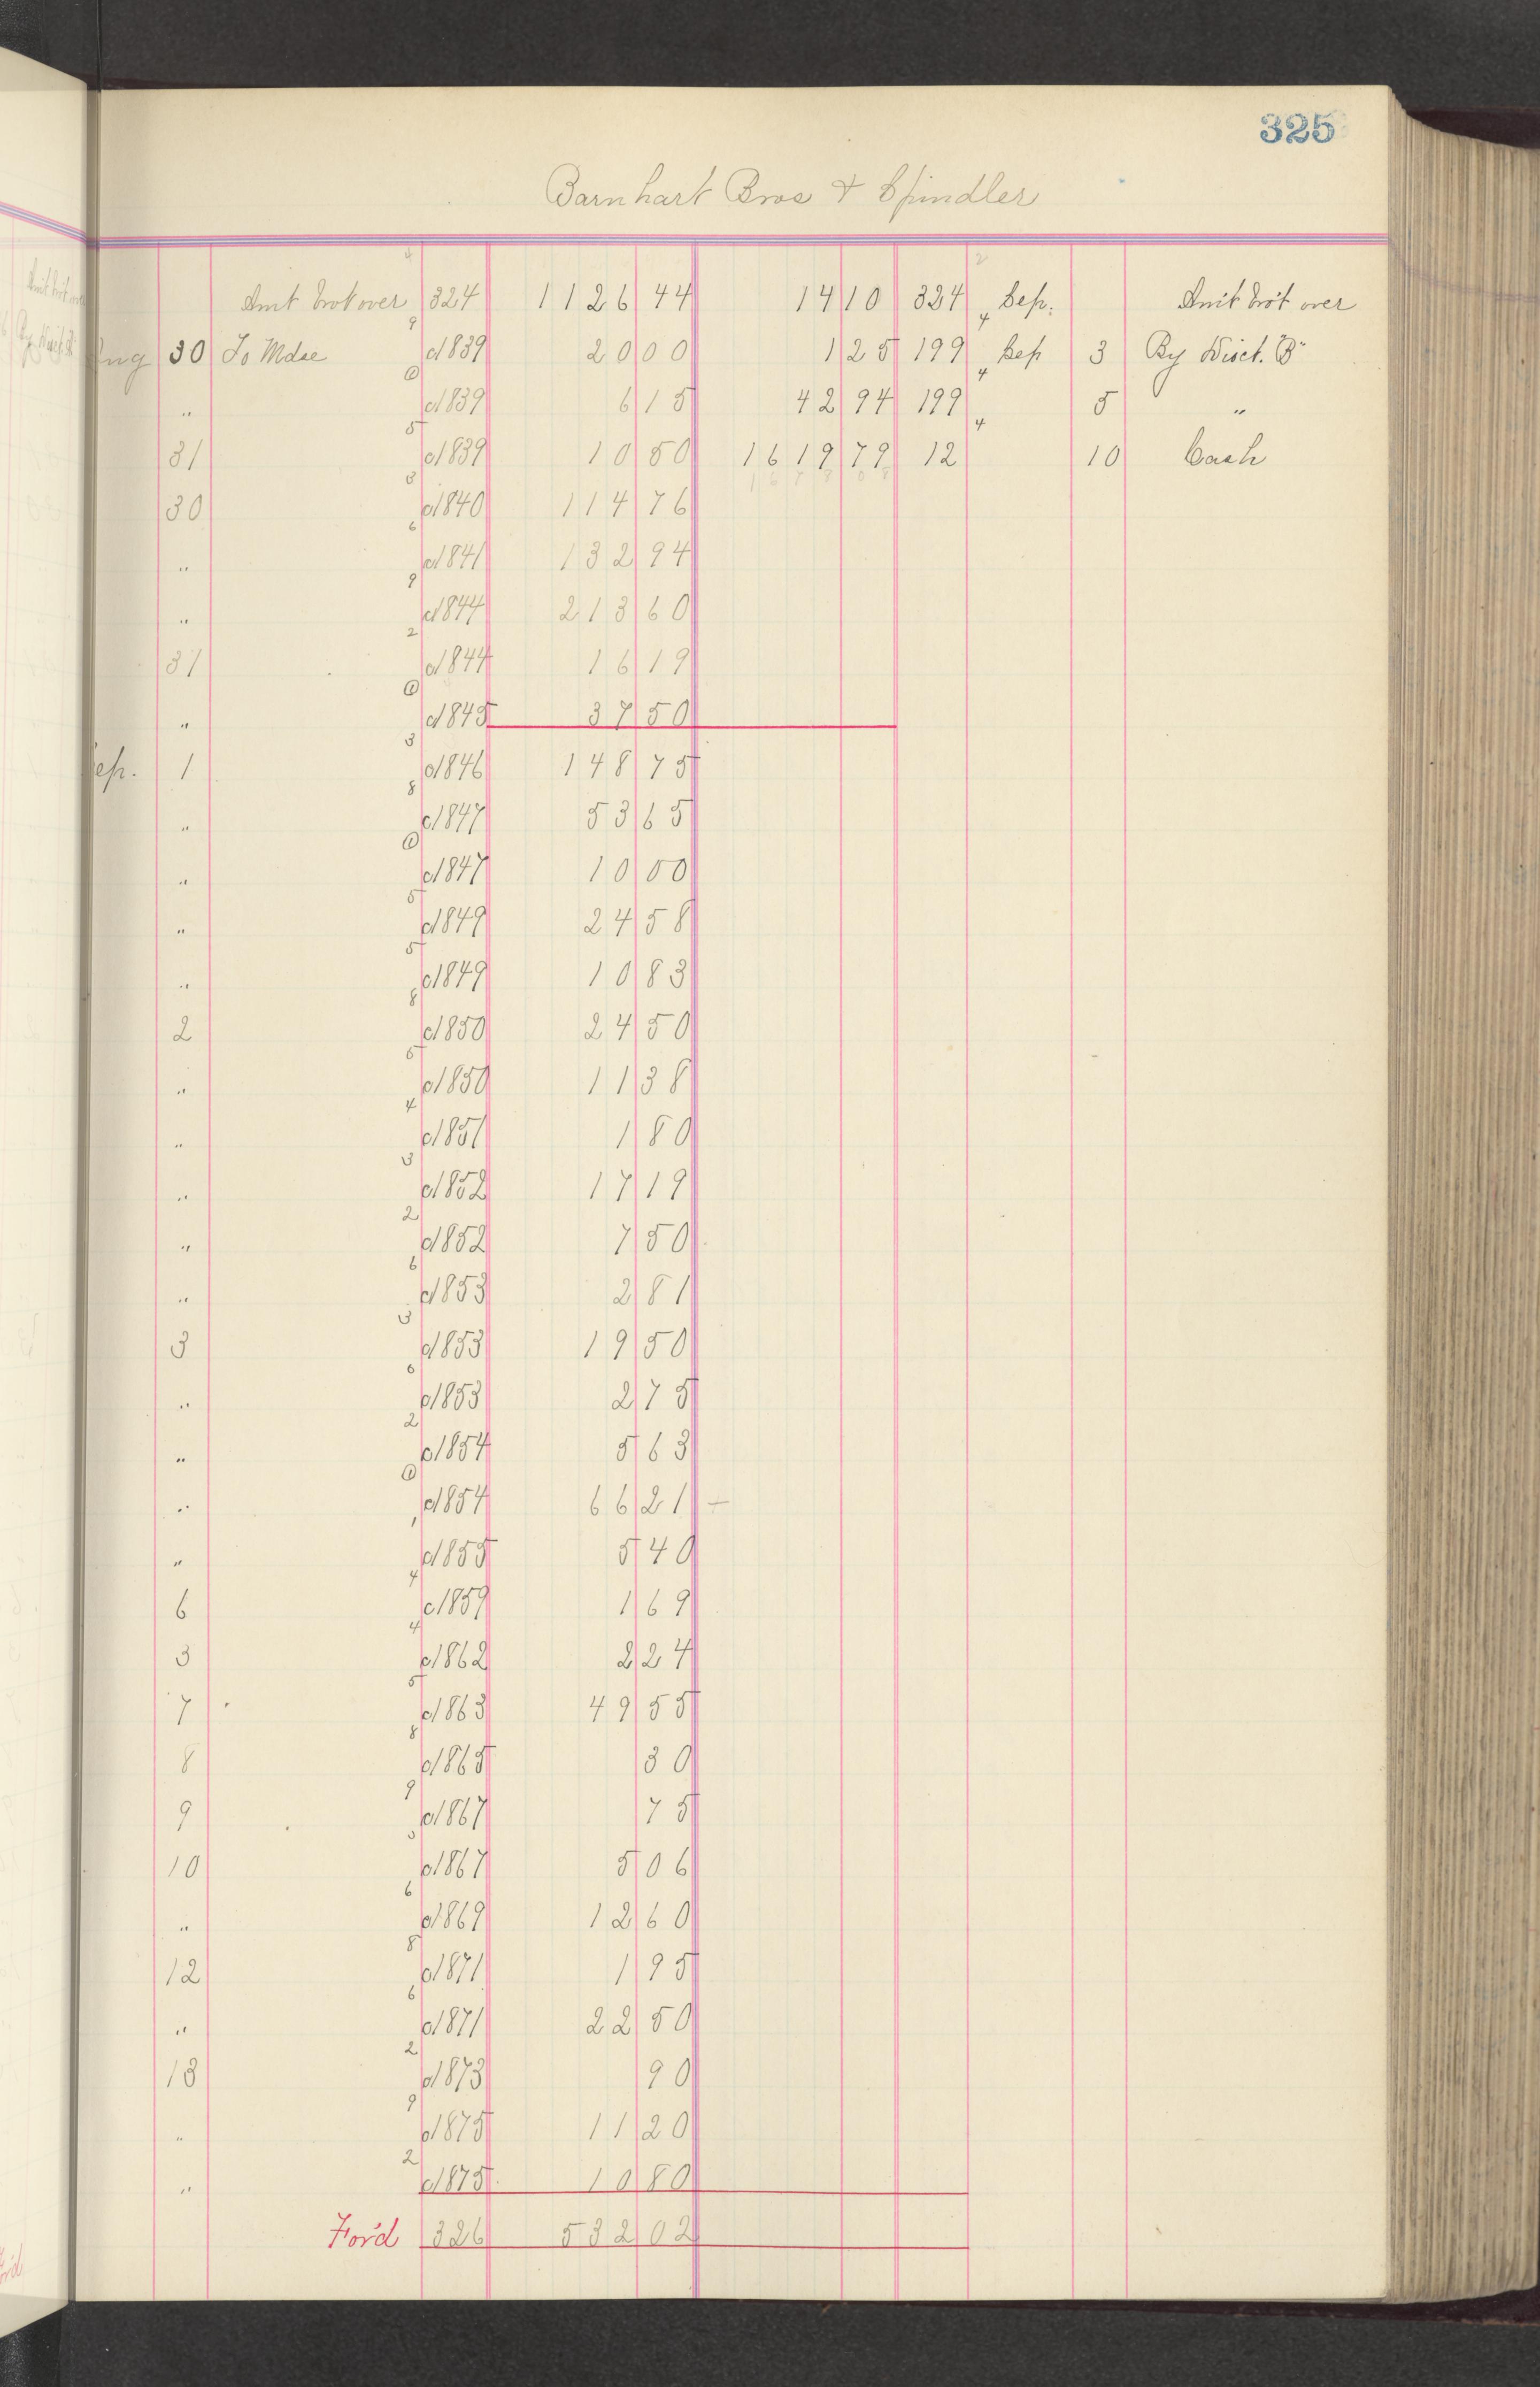 325
Barnhart Bros & Spindler
Amt brot over 324 1126 44 14 10 324 Sep. Amt bro't over
Aug 30 To Mdse c1839 20 00 1 25 199 Sep 3 By Disct. "B"
" c1839 6 15 42 94 199 5 "
31 c1839 10 50 1619 79 12 10 Cash
30 c1840 114 76 1678 08
" c1841 132 94
" c1844 213 60
31 c1844 16 19
" c1845 37 50
Sep. 1 c1846 148 75
" c1847 53 65
" c1847 10 00
" c1849 24 58
" c1849 10 83
2 c1850 24 50
" c1850 11 38
" c1851 1 80
" c1852 17 19
" c1852 7 50
" c1853 2 81
3 c1853 19 50
" c1853 2 75
" c1854 5 63
" c1854 66 21 –
" c1855 5 40
6 c1859 1 69
3 c1862 2 24
7 c1863 49 55
8 c1865 30
9 c1867 75
10 c1867 5 06
" c1869 12 60
12 c1871 1 95
" c1871 22 50
13 c1873 90
" c1875 11 20
" c1875 10 80
For'd 326 532 02